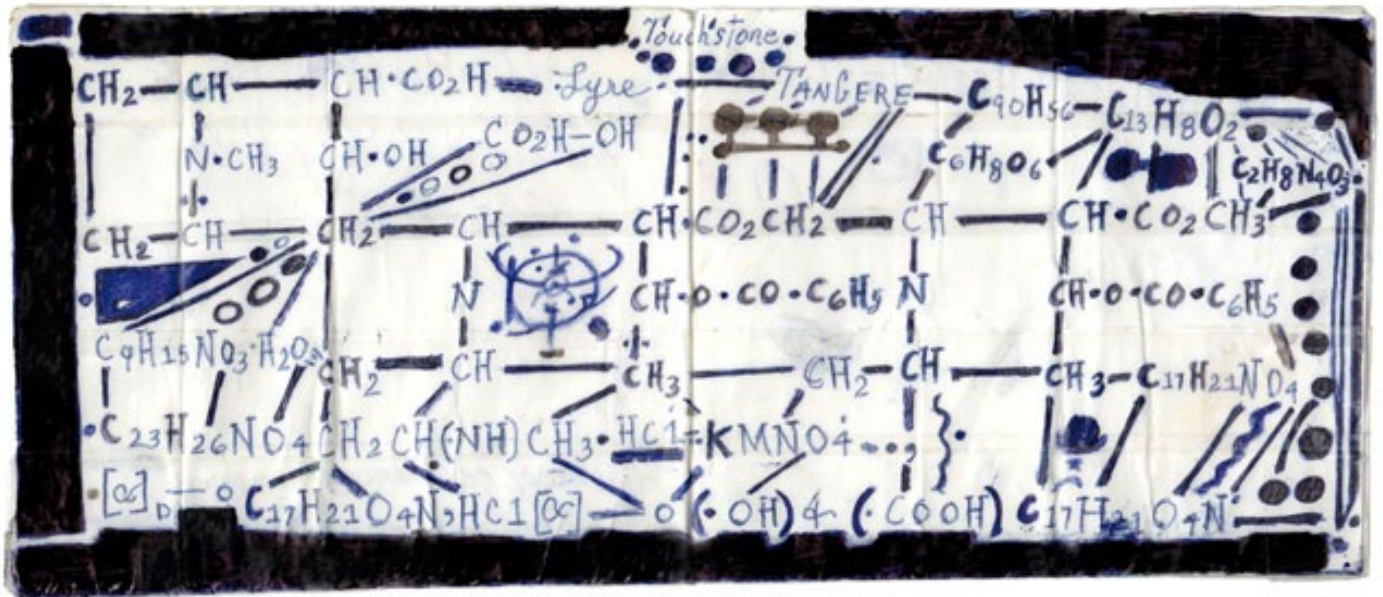 Touchstone
CH₂ CH CH·CO₂H Lyre TANGERE C₉₀H₅₆ C₁₃H₈O₂
N·CH₃ CH·OH CO₂H-OH C₆H₈O₆ C₂H₈N₄O₃
CH₂ CH CH₂ CH CH·CO₂CH₂ CH CH·CO₂CH₃
N CH·O·CO·C₆H₅ N CH·O·CO·C₆H₅
C₉H₁₅NO₃·H₂O CH₂ CH CH₃ CH₂ CH CH₃ C₁₇H₂₁NO₄
C₂₃H₂₆NO₄ CH₂CH(NH)CH₃·HCl=KMNO4
[α]D—o C₁₇H₂₁O₄N,HCl [α]—o (·OH)4 (·COOH) C₁₇H₂₁O₄N